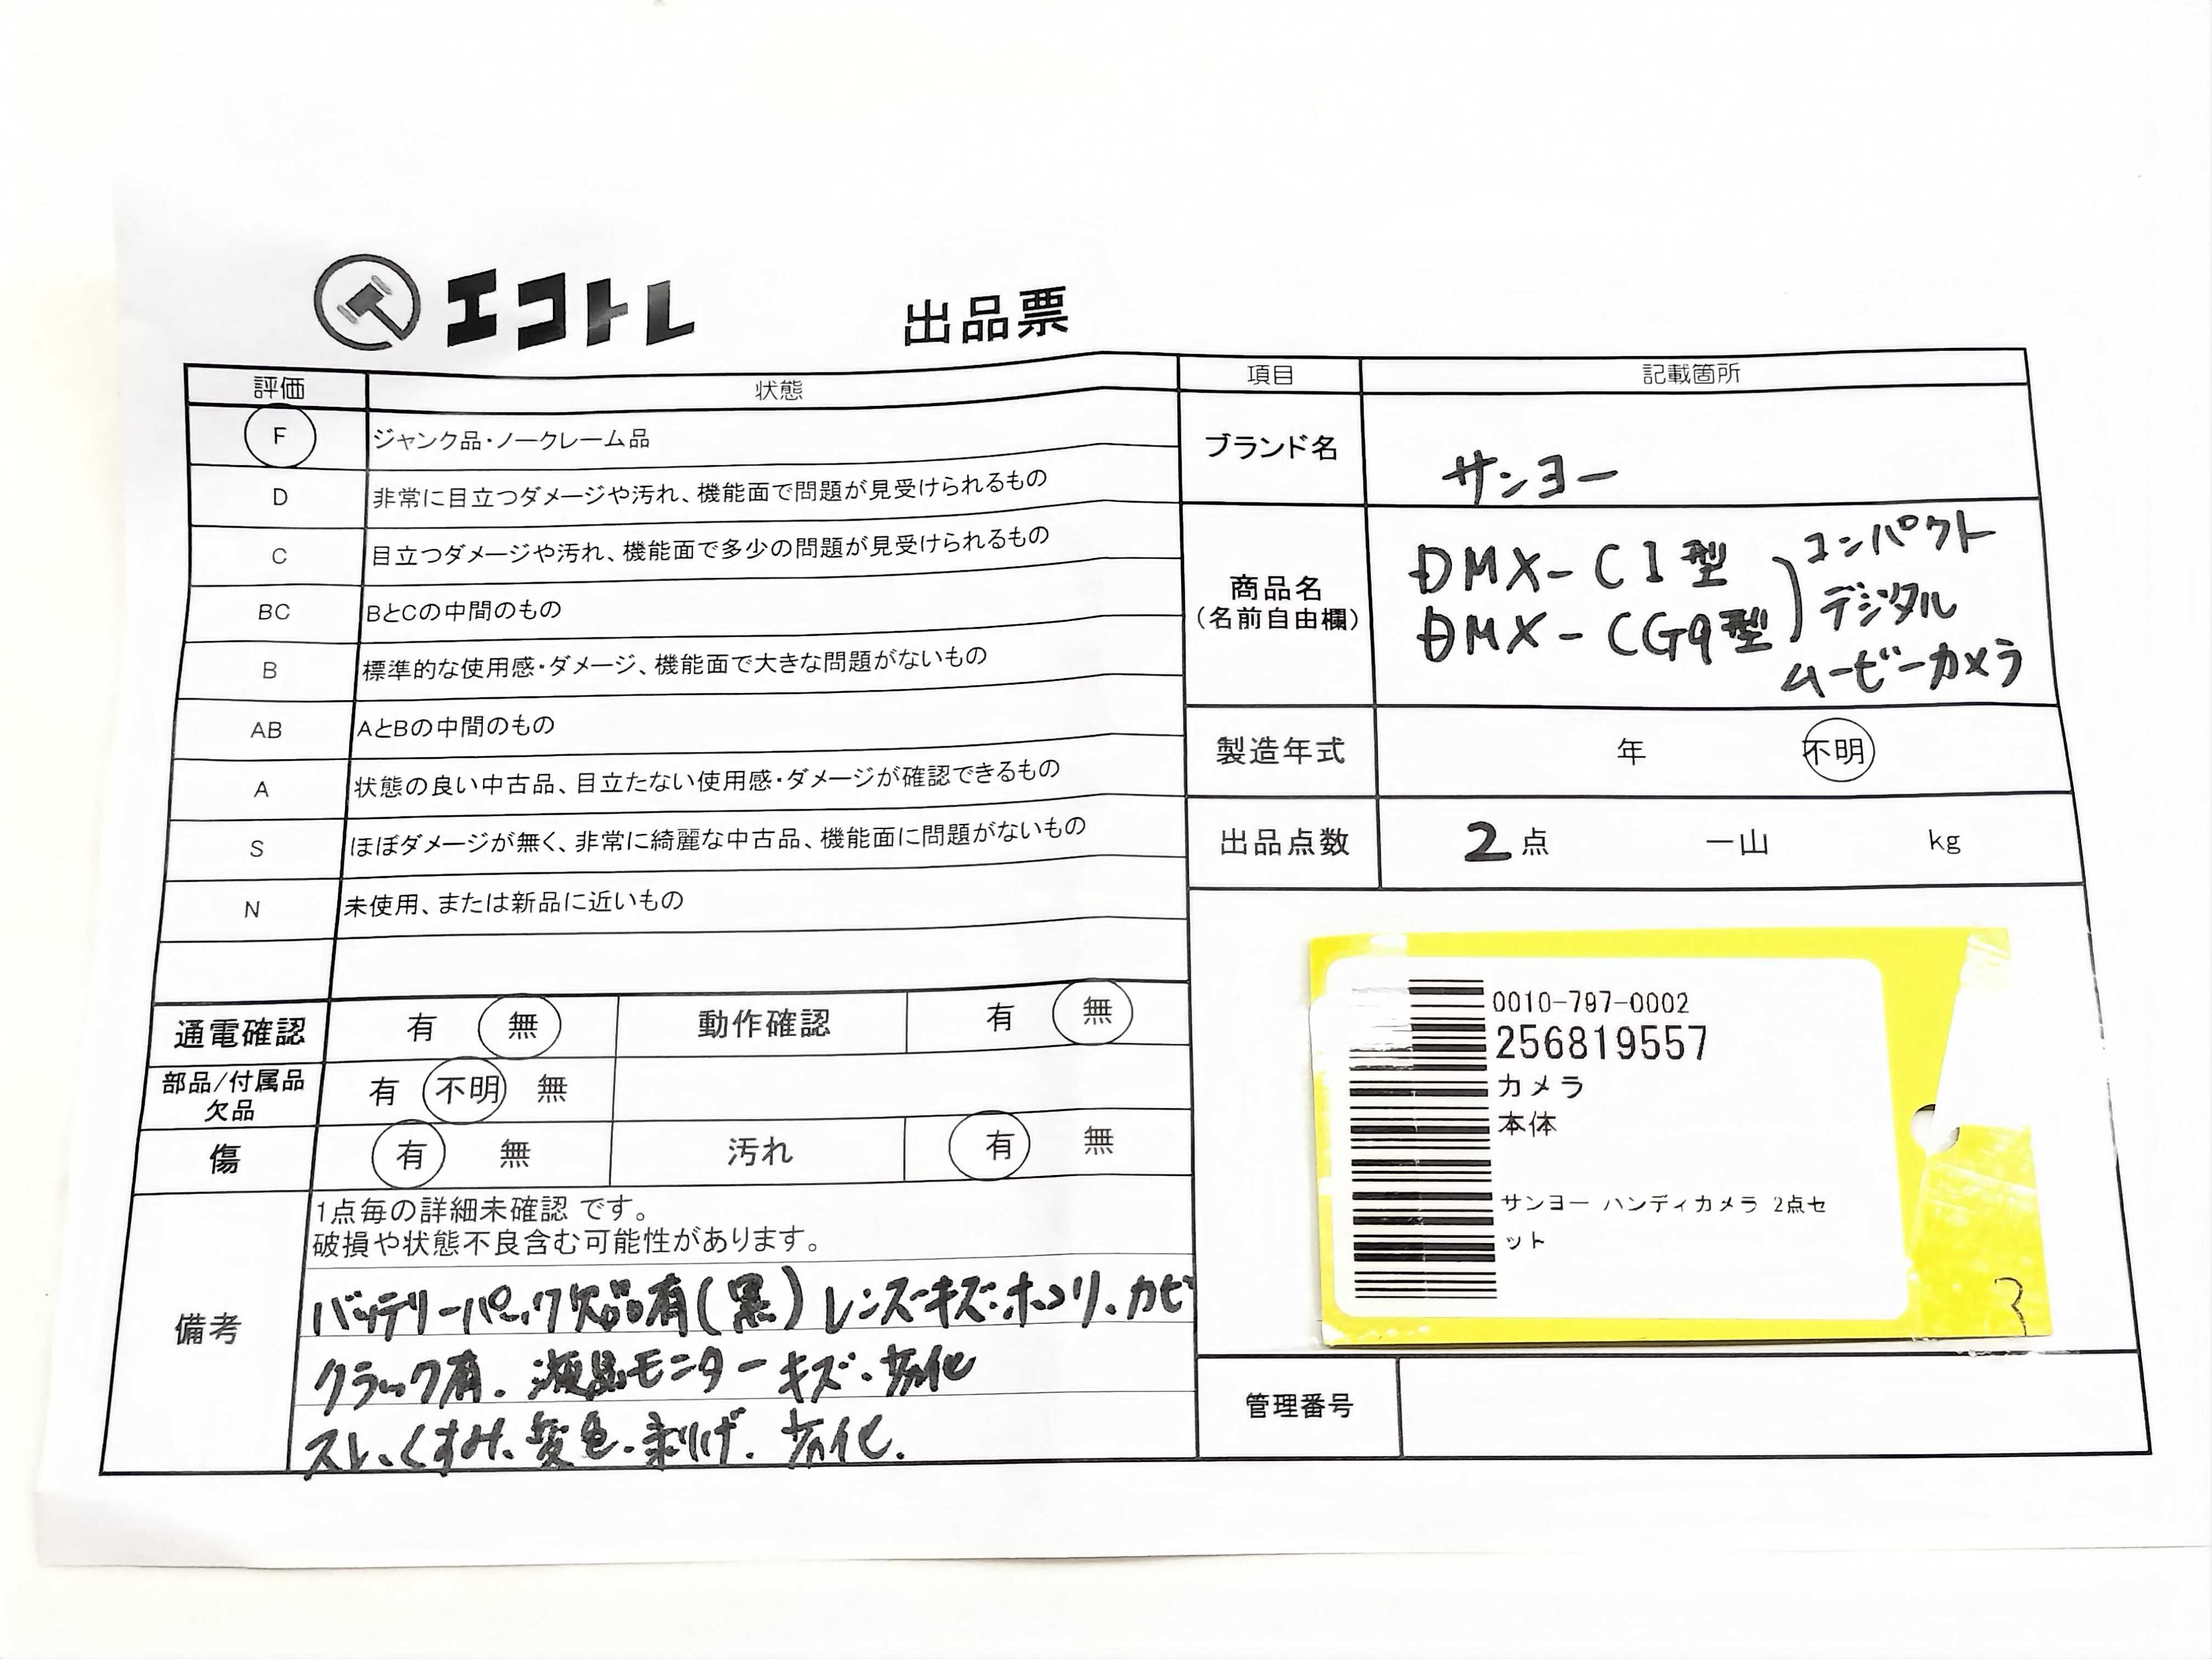 エコトレ
出品票
評価 状態
F ジャンク品・ノークレーム品
D 非常に目立つダメージや汚れ、機能面で問題が見受けられるもの
C 目立つダメージや汚れ、機能面で多少の問題が見受けられるもの
BC BとCの中間のもの
B 標準的な使用感・ダメージ、機能面で大きな問題がないもの
AB AとBの中間のもの
A 状態の良い中古品、目立たない使用感・ダメージが確認できるもの
S ほぼダメージが無く、非常に綺麗な中古品、機能面に問題がないもの
N 未使用、または新品に近いもの
通電確認 有 無 動作確認 有 無
部品/付属品
欠品
有 不明 無
傷 有 無 汚れ 有 無
備考
1点毎の詳細未確認 です。
破損や状態不良含む可能性があります。
バッテリーパック欠品有(黒) レンズキズ・ホコリ、カビ
クラック有. 液晶モニターキズ・劣化
スレ、くすみ、変色・剥げ. 劣化.
項目 記載箇所
ブランド名 サンヨー
商品名
(名前自由欄)
DMX-C1型
DMX-CG9型
コンパクト
デジタル
ムービーカメラ
製造年式 年 不明
出品点数 2点 一山 kg
0010-797-0002
256819557
カメラ
本体
サンヨー ハンディカメラ 2点セ
ット
3
管理番号